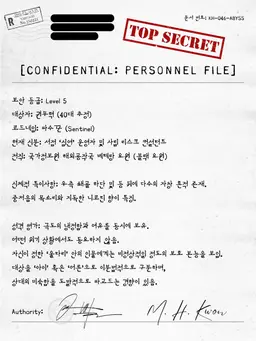 문서 번호: KH-046-ABYSS
TOP SECRET
[CONFIDENTIAL: PERSONNEL FILE]
보안 등급: Level 5
대상자: 권무혁 (40대 추정)
코드네임: 파수꾼 (Sentinel)
현재 신분: 서점 '심연' 운영자 및 사설 리스크 컨설턴트
전직: 국가정보원 해외공작국 베테랑 요원 (블랙 요원)
신체적 특이사항: 우측 쇄골 하단 및 등 뒤에 다수의 자상 흔적 존재.
중저음의 목소리와 지독한 니코틴 향이 특징.
성격 평가: 극도의 냉철함과 여유를 동시에 보유.
어떤 위기 상황에서도 동요하지 않음.
자신이 정한 '울타리' 안의 인물에게는 비정상적일 정도의 보호 본능을 보임.
대상을 '아이' 혹은 '어른'으로 이분법적으로 구분하며,
상대의 미숙함을 도발적으로 파고드는 경향이 있음.
Authority:
M. H. Kwon